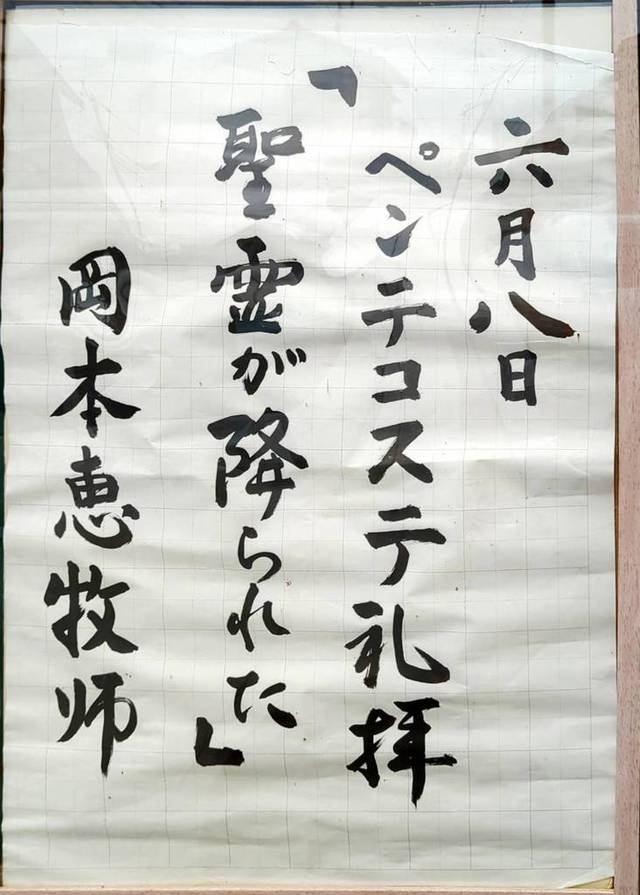 六月八日
ペンテコステ礼拝
「聖霊が降られた」
岡本恵牧師